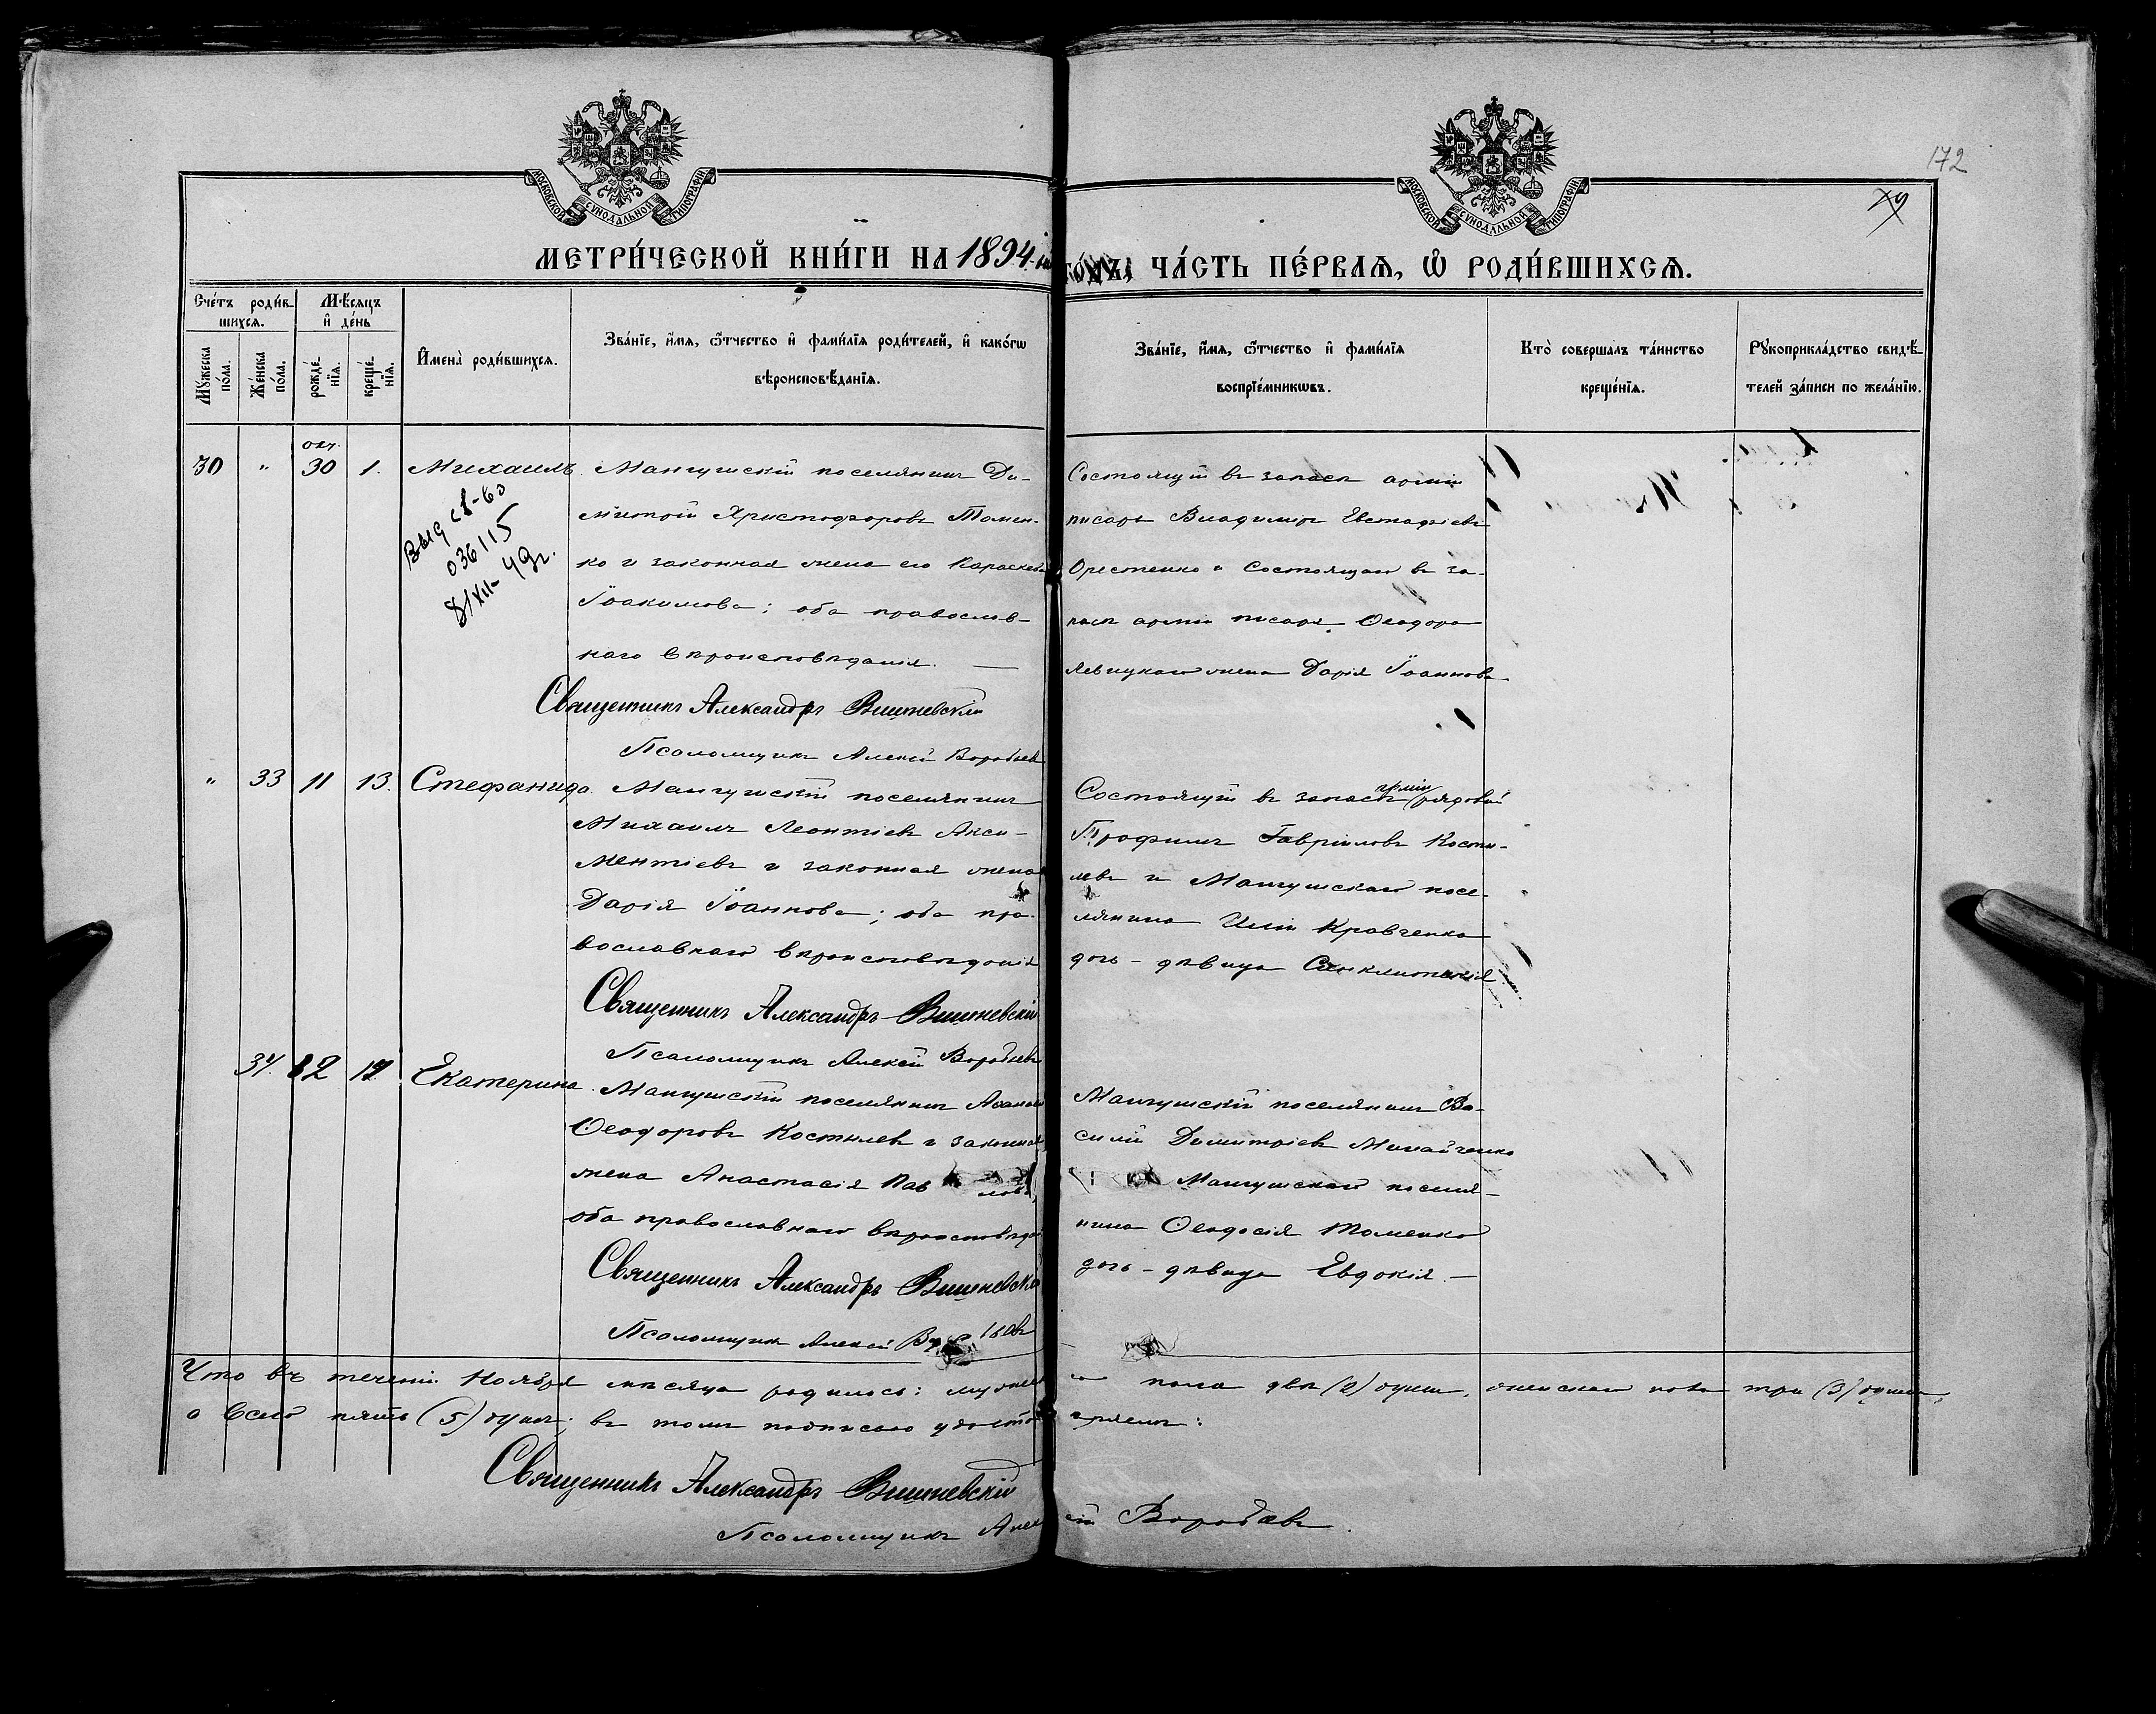 172
79
МОСКОВСКОЙ СѴНОДАЛЬНОЙ ТИПОГРАФІИ
МОСКОВСКОЙ СѴНОДАЛЬНОЙ ТИПОГРАФІИ
МЕТРИ́ЧЕСКОЙ КНИ́ГИ НА 1894 ГОДЪ, ЧА́СТЬ ПЕ́РВАѦ, Ѡ҆ РОДИ́ВШИХСѦ.
Сче́тъ роди́в-
шихсѧ.
Мѣ́сяцъ
и҆ де́нь
Мꙋ́жеска по́ла.
Же́нска по́ла.
рожде́-нїѧ.
креще́-нїѧ.
И҆мена̀ роди́вшихсѧ.
Зва́нїе, и҆́мѧ, ѻ҆́тчество и҆ фами́лїѧ роди́телей, и҆ како́гѡ
вѣроисповѣ́данїѧ.
Зва́нїе, и҆́мѧ, ѻ҆́тчество и҆ фами́лїѧ
воспрїе́мникѡвъ.
Кто̀ соверша́лъ та́инство
креще́нїѧ.
Рꙋкоприкла́дство свидѣ́-
телей за́писи по жела́нїю.
30 " окт. 30 1. Михаилъ. Мангушскій поселянинъ Ди-
митрій Христофоровъ Томен-
ко и законная жена его Параскева
Іоакимова; оба православ-
наго вѣроисповѣданія. —
036115
Священникъ Александръ Вишневскій
Псаломщикъ Алексій Воробьевъ
Состоящій въ запасѣ арміи
писарь Владиміръ Евстафіевъ
Орестенко и состоящаго въ за-
пасѣ арміи писаря Ѳеодора
Левицкаго жена Дарія Іоаннова
" 33 11 13. Стефанида. Мангушскій поселянинъ
Михаилъ Леонтіевъ Акси-
ментіевъ и законная жена
Дарія Іоаннова; оба пра-
вославнаго вѣроисповѣданія
Священникъ Александръ Вишневскій
Псаломщикъ Алексій Воробьевъ
Состоящій въ запасѣ арміи рядовой
Трофимъ Гавріиловъ Косты-
левъ и Мангушскаго посе-
лянина Иліи Кравченко
дочь - дѣвица Синклитикія
34. 12 17. Екатерина. Мангушскій поселянинъ
Ѳеодоровъ Костылевъ и законная
жена Анастасія Павлова,
оба православнаго вѣроисповѣда
Священникъ Александръ Вишневскій
Псаломщикъ Алексій
Мангушскій поселянинъ Ва-
силій Димитріевъ Минайченко
Мангушскаго поселя-
нина Ѳеодосія Томенко
дочь - дѣвица Евдокія. —
Что въ теченіи Ноября мѣсяца родилось: мужескаго пола два (2) души, женскаго пола три (3) души,
а всего пять (5) душъ; въ томъ подписью удостовѣряемъ:
Священникъ Александръ Вишневскій
Псаломщикъ Алексій Воробьевъ.